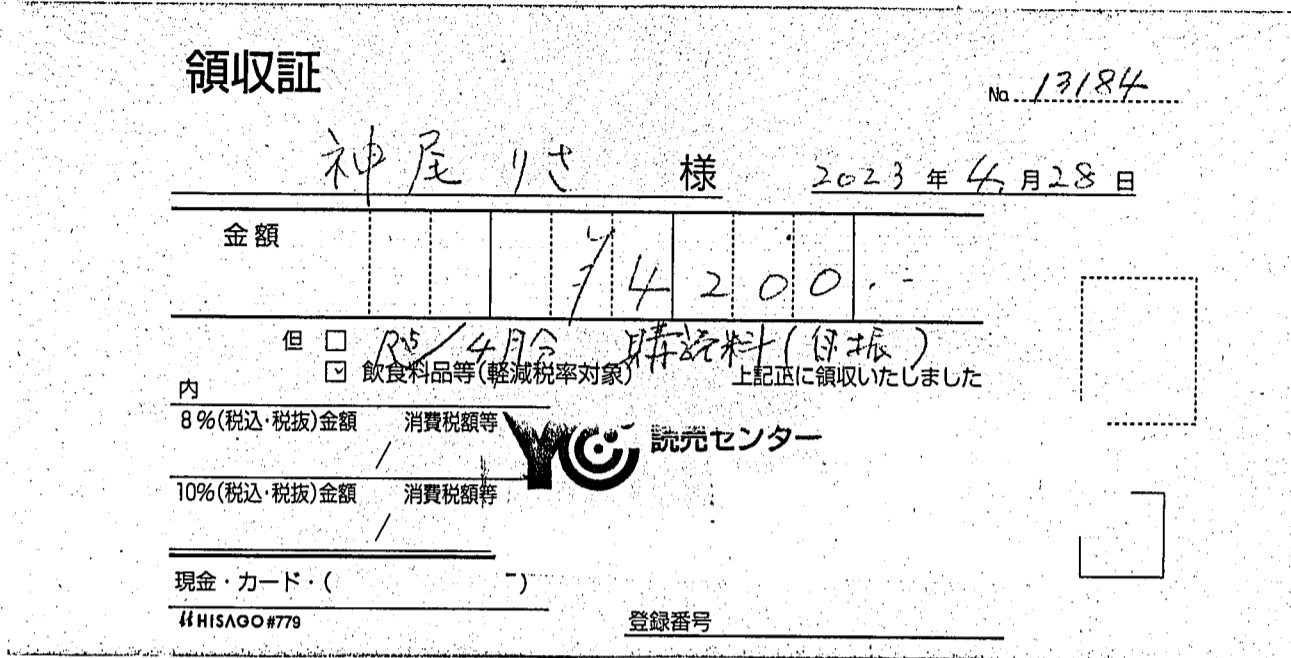 領収証
No. 13184
神尾りさ 様 2023年4月28日
金額 ¥4200.-
但 □ R5/4月分 購読料(自振)
☑ 飲食料品等(軽減税率対象) 上記正に領収いたしました
内
8%(税込・税抜)金額 消費税額等
/
YC 読売センター
10%(税込・税抜)金額 消費税額等
/
現金・カード・( )
HISAGO #779
登録番号